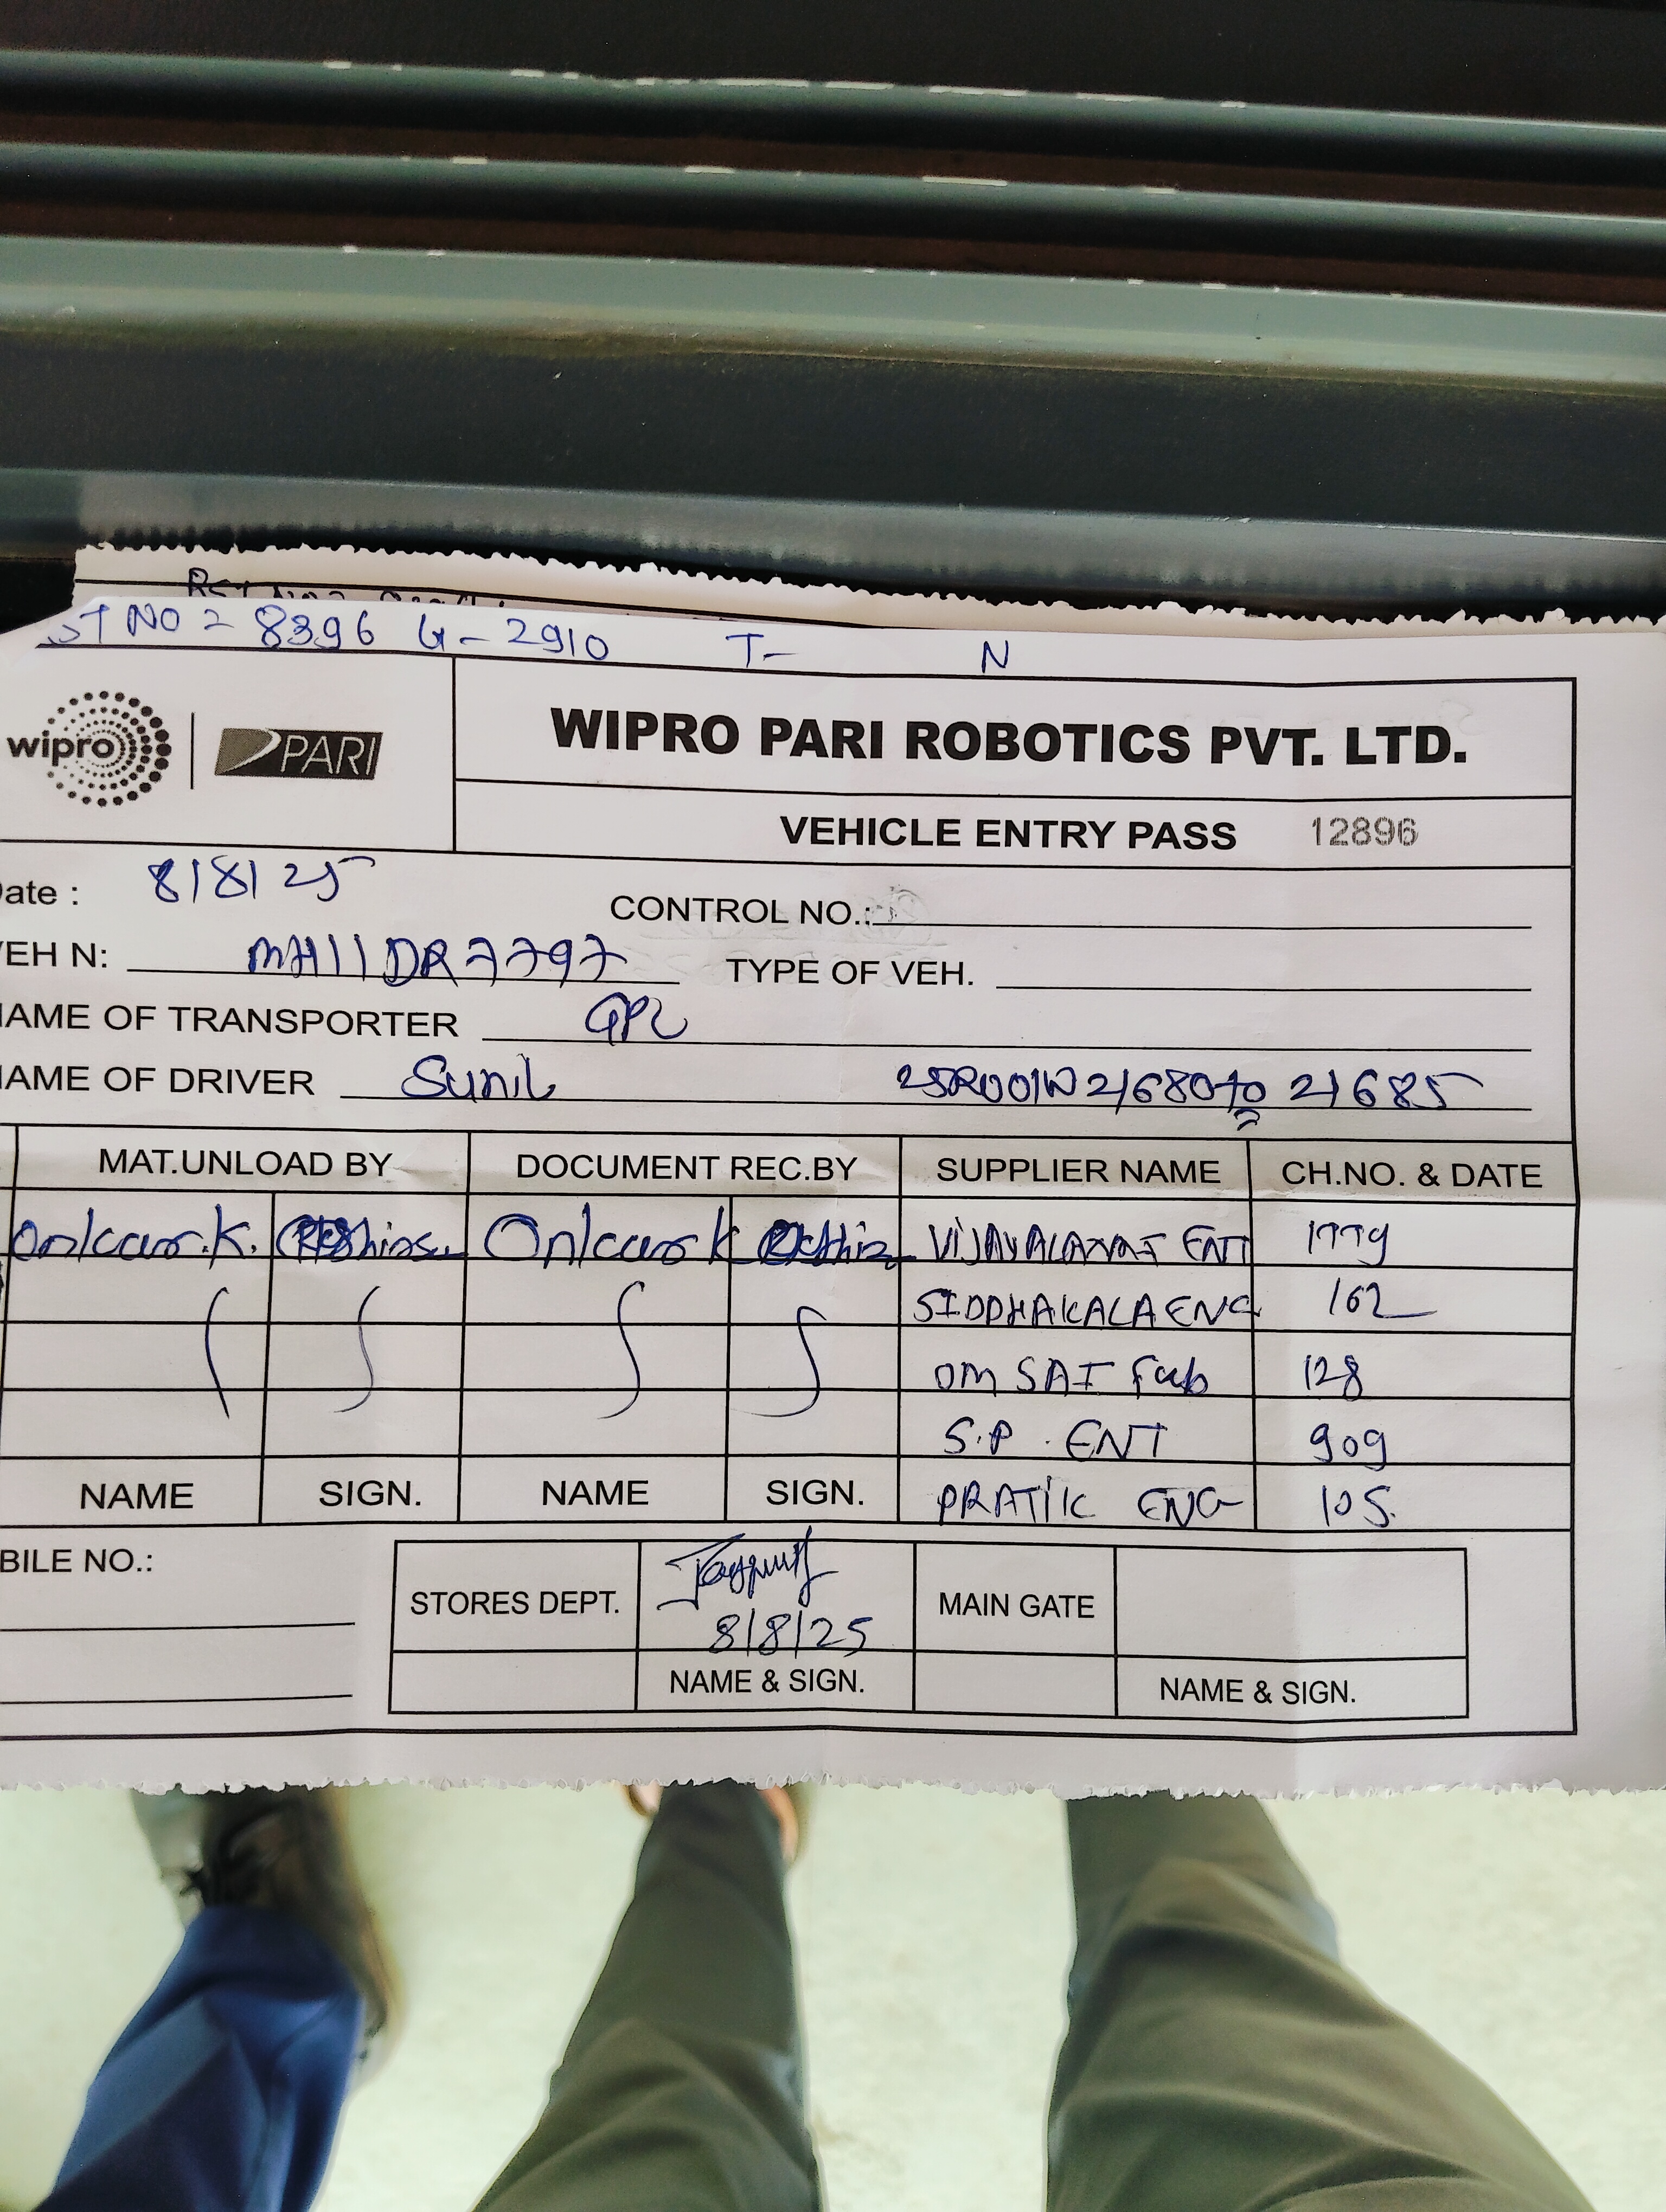 ST NO = 8396 G - 2910 T- N
wipro PARI
WIPRO PARI ROBOTICS PVT. LTD.
VEHICLE ENTRY PASS 12896
ate : 8/8/25
CONTROL NO.:
EH N: MH11DR7797 TYPE OF VEH.
AME OF TRANSPORTER GPL
AME OF DRIVER Sunil 25R001W21680 to 21685
MAT.UNLOAD BY DOCUMENT REC.BY SUPPLIER NAME CH.NO. & DATE
Onkar.K. Onkar K ENT 1779
SIDDHAKALA ENG 162
OM SAI Fab 128
S.P. ENT 909
NAME SIGN. NAME SIGN. PRATIK ENG 105.
BILE NO.:
STORES DEPT. 8/8/25 MAIN GATE
NAME & SIGN. NAME & SIGN.